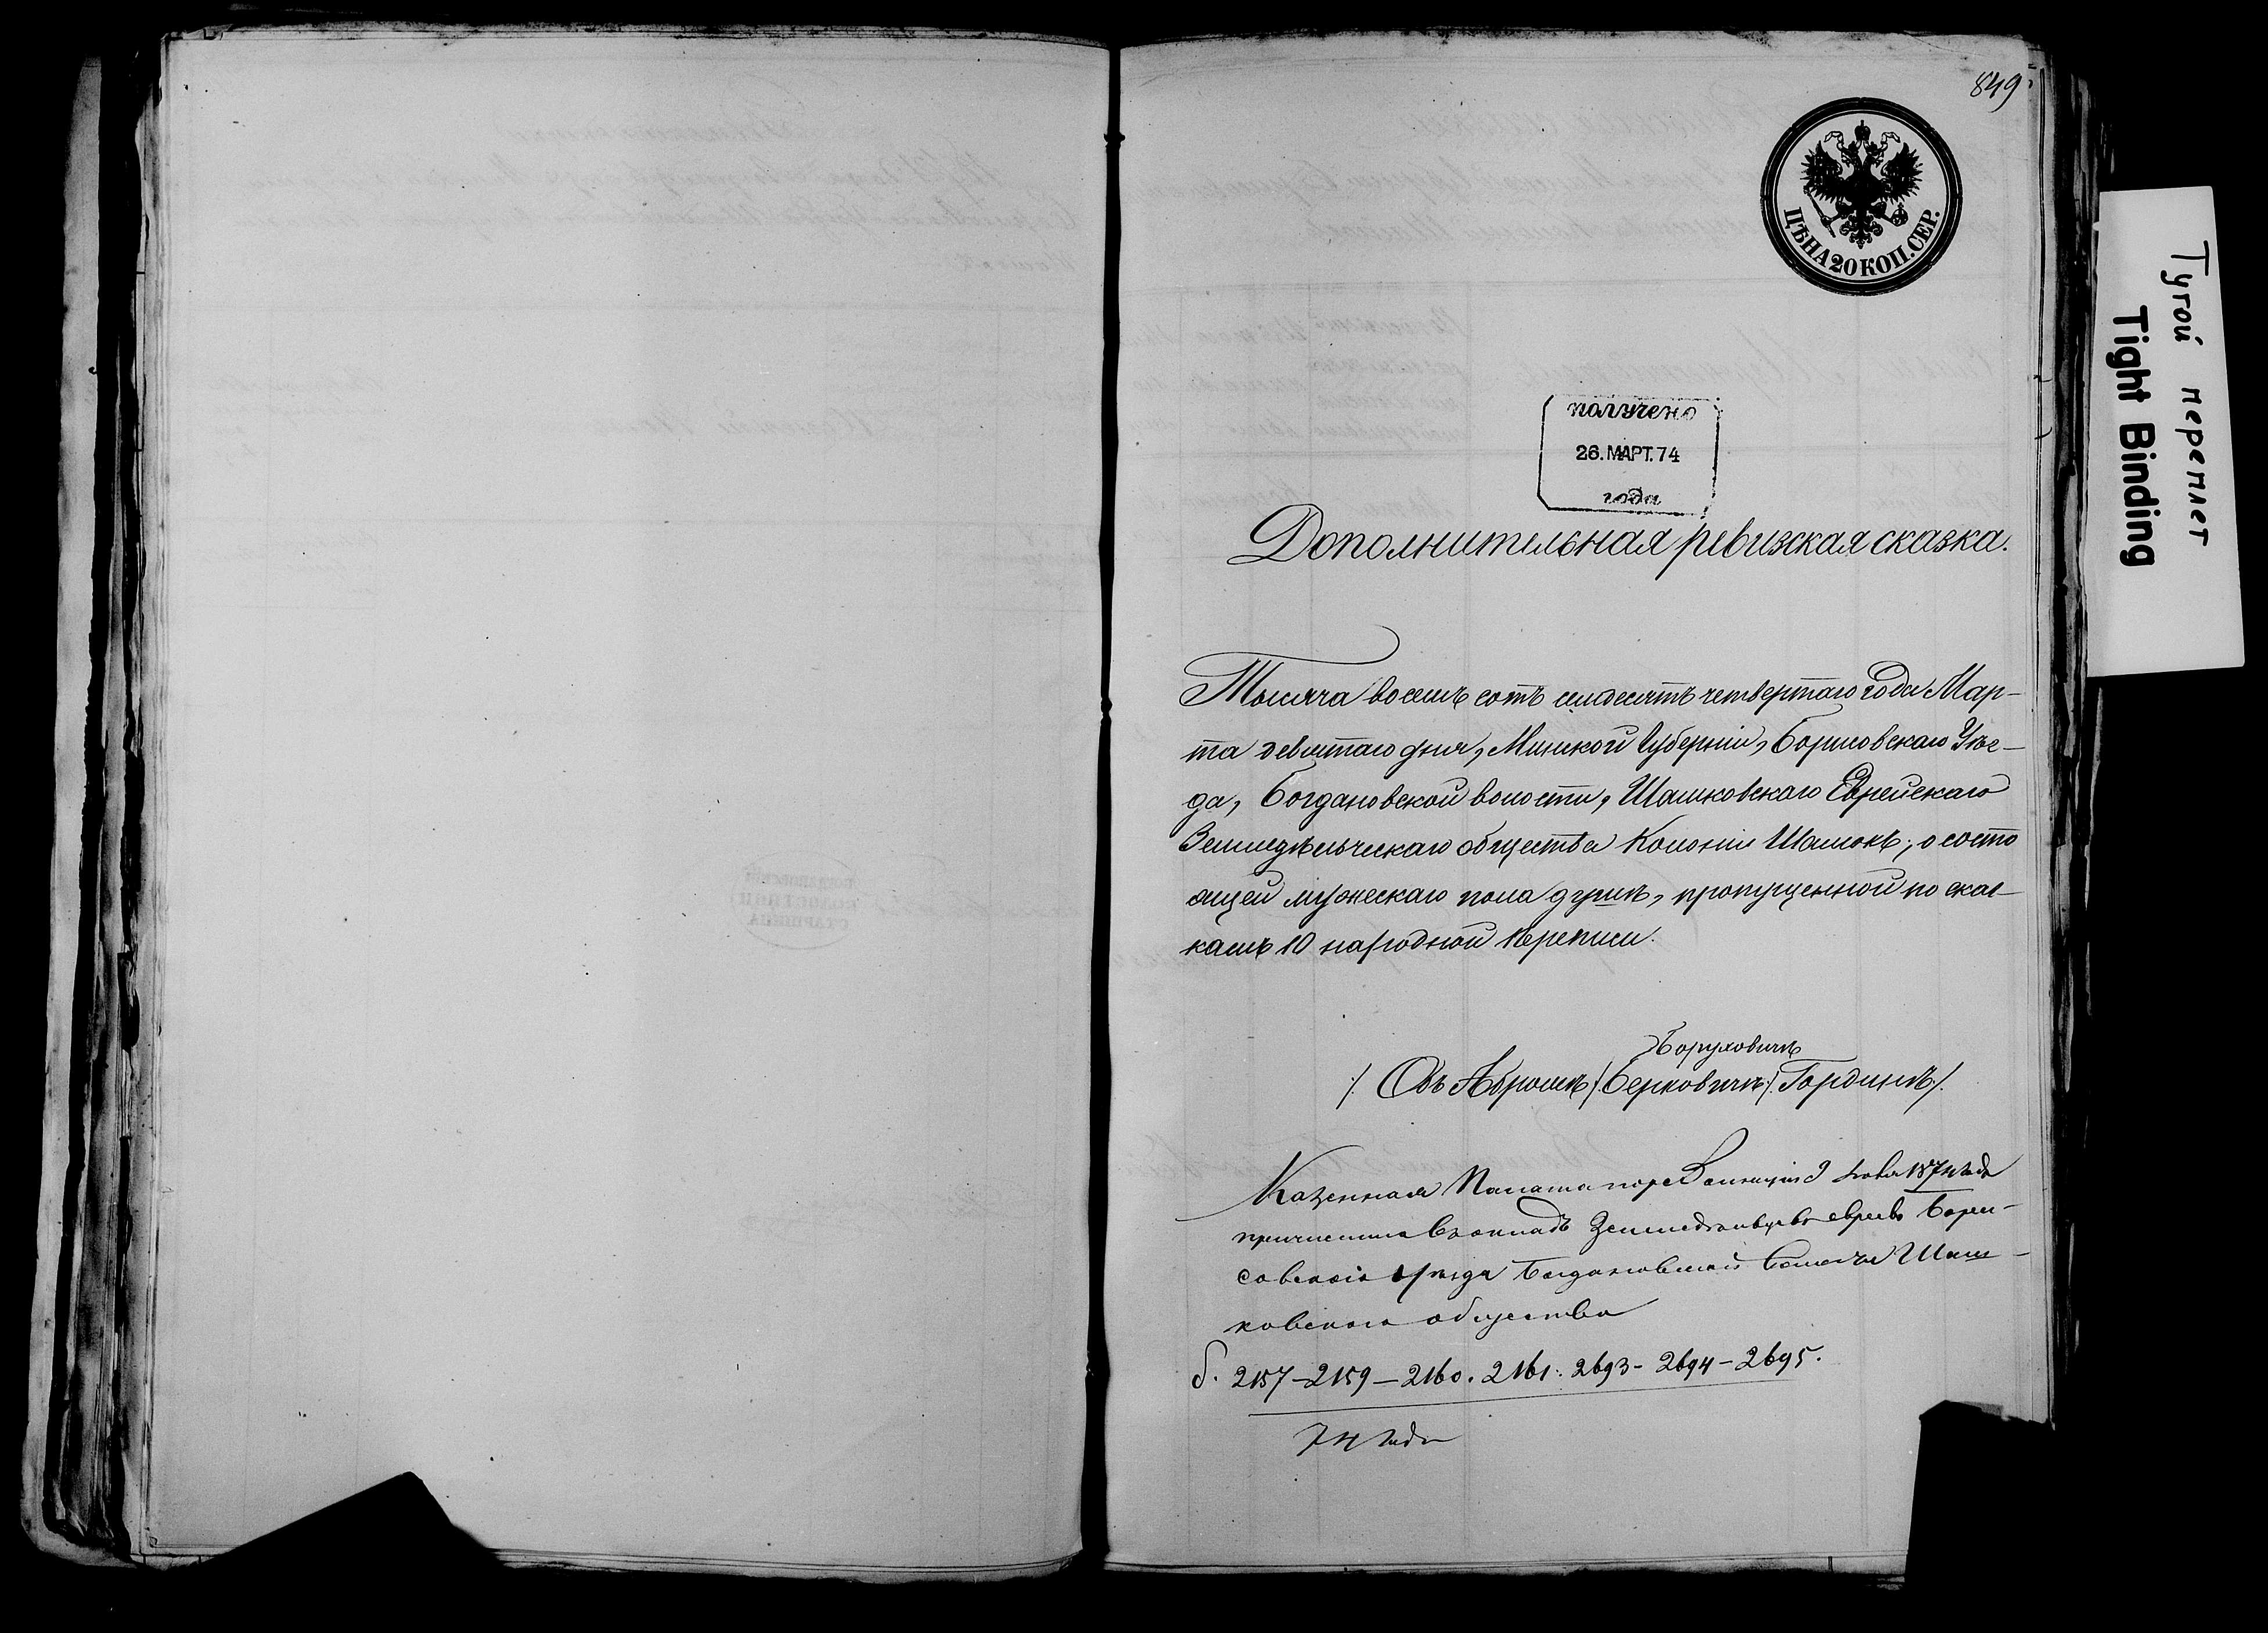 849
ЦѢНА 20 КОП. СЕР.
получено
26. МАРТ. 74
года
Дополнительная ревизская сказка.
Тысяча восемь сотъ семдесятъ четвертаго года Мар-
та девятаго дня, Минской Губерніи, Борисовскаго Уѣз-
да, Богдановской волости, Шашковскаго Еврейскаго
Земледѣльческаго общества Колоніи Шашокъ; о состо
ящей мужескаго пола душѣ, пропущенной по сказ-
камъ 10 народной переписи.
Боруховичѣ
/. Объ Абромѣ /Берковичѣ/ Гординѣ/.
Казенная Палата по резолюціи 9 1874 года
причислила въ окладъ Земледѣльцевъ евреевъ Бори-
совскаго уѣзда Богдановской волости Шаш-
ковскаго общества
б. 2157-2159-2160. 2161. 2693-2694-2695.
74 года
Тугой переплет
Tight Binding